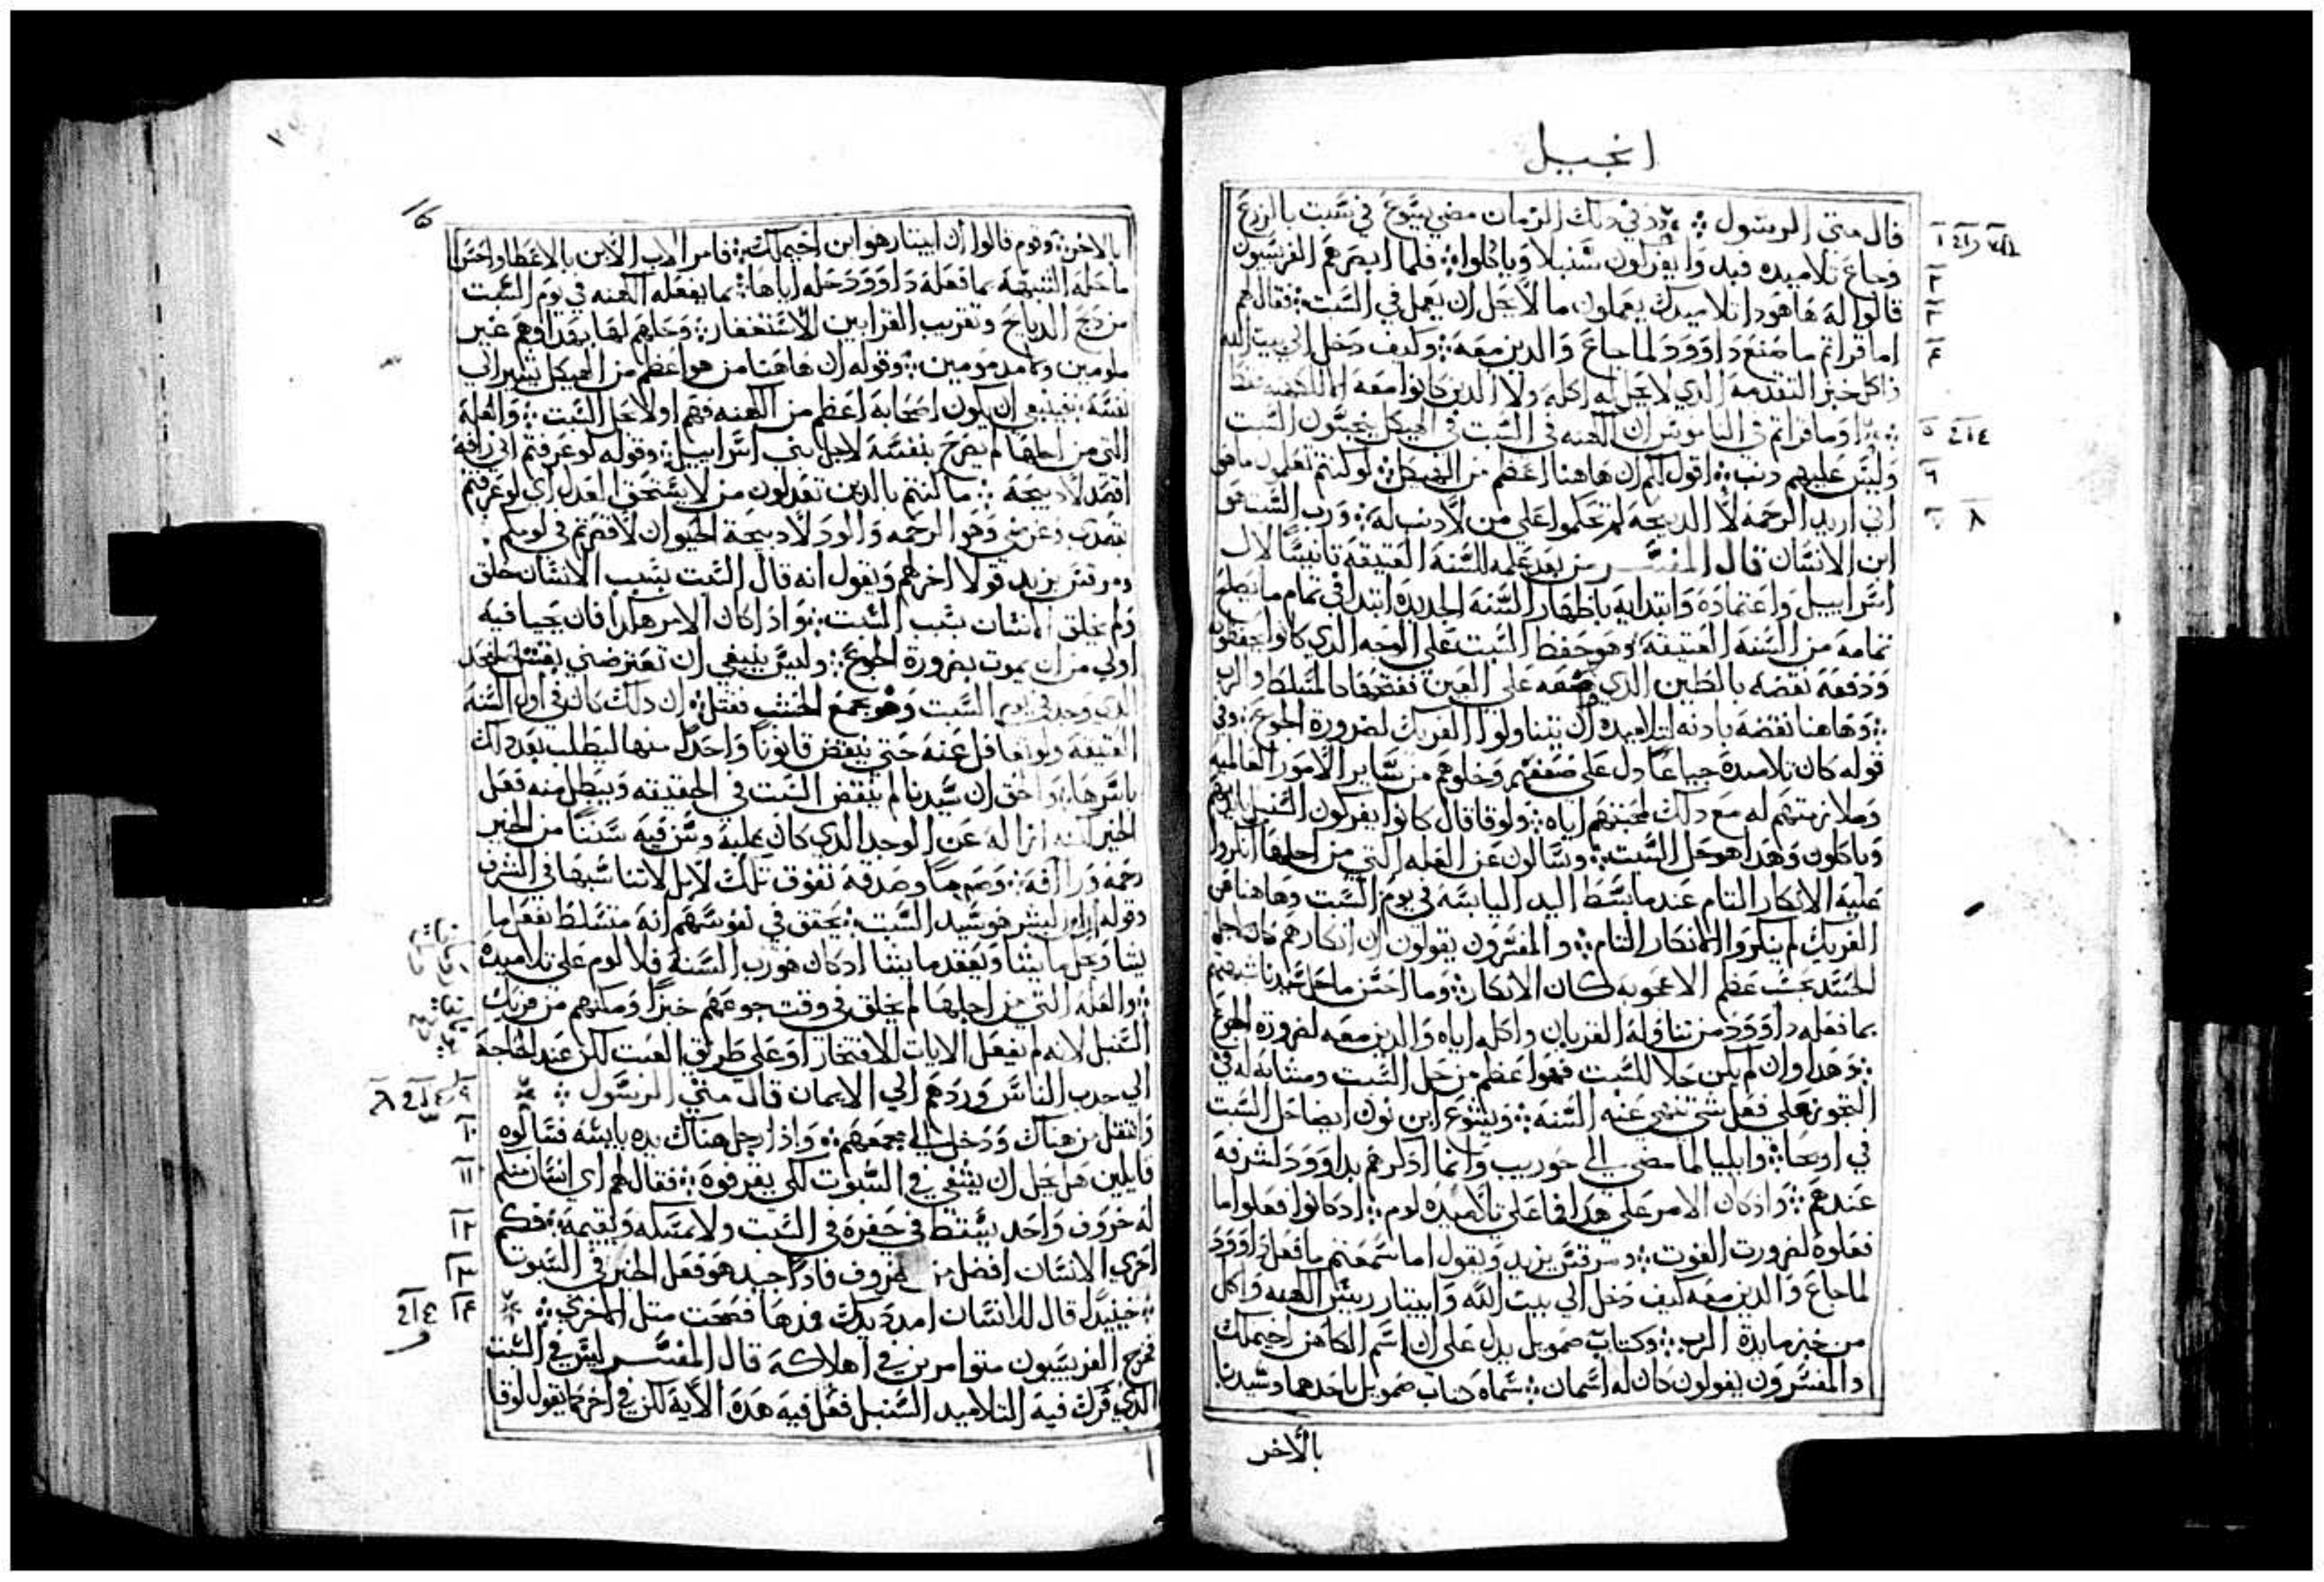 انجيل
قال متي الرسول ۞ وفي دلك الزمان مضي يسوع في سبت بالزرع
وجاع تلاميده فبدوا يفركون سنبلا وياكلوا ۞ فلما ابصرهم الفريسيون
قالوا له هاهودا تلاميدك يعملون ما لا يحل ان يعمل في السبت ۞ فقال لهم
اما قراتم ما صنع داوود لما جاع والدين معه ۞ وكيف دخل الي بيت الله
واكل خبز التقدمه الدي لا يحل له اكله ولا الدين كانوا معه الا للكهنه فقط
۞ اوما قراتم في الناموس ان الكهنه في السبت في الهيكل ينجسون السبت
وليس عليهم دنب ۞ اقول لكم ان هاهنا اعظم من الهيكل ۞ لو كنتم تعلمون ما هو
اني اريد الرحمه لا الدبيحه لم تحكموا علي من لا دنب له ۞ ورب السبت هو
ابن الانسان قال المفسر من بعد علمه للسنه العتيقه تانيسا لال
اسراييل واعتماده وابتدايه باظهار السنه الجديده ابتدا في تمام ما يصلح
تمامه من السنه العتيقه وهو حفظ السبت علي الوجه الدي كانوا يحفظونه
ودفعه نقضه بالطين الدي وضعه علي العين نقضها كالمتسلط والرب
۞ وهاهنا نقضه بادنه لتلاميده ان يتناولوا الفريك لضرورة الجوع ۞ وفي
قوله كان تلاميده جياعا دل علي ضعفهم وخلوهم من ساير الامور العالميه
وملازمتهم له مع دلك لمحبتهم اياه ۞ ولوقا قال كانوا يفركون السنبل بايديهم
وياكلون وهدا هو حل السبت ۞ ونسالون عن العله التي من اجلها انكروا
عليه الانكار التام عند ما بسط اليد اليابسه في يوم السبت وهاهنا من
الفريك لم ينكروا الانكار التام ۞ والمفسرون يقولون ان انكارهم كان لاجل
الحسد بحسب عظم الاعجوبه كان الانكار ۞ وما احسن ما حل سيدنا شبهتهم
بما فعله داوود من تناوله القربان واكله اياه والدين معه لضرورة الجوع
۞ وهدا وان لم يكن حلا للسبت فهو اعظم من حل السبت ومشابه له في
التجوز علي فعل شي تنهي عنه السنه ۞ ويشوع ابن نون ايضا حل السبت
في اريحا ۞ وايليا لما مضي الي حوريب وانما ادكرهم بداوود لشرفه
عندهم ۞ وادكان الامر علي هدا فما علي تلاميده لوم ۞ ادكانوا فعلوا ما
فعلوه لضرورت القوت ۞ ومرقس يزيد ويقول اما سمعتم ما فعل داوود
لما جاع والدين معه كيف دخل الي بيت الله وابيتار رييس الكهنه واكل
من خبز مايدة الرب ۞ وكتاب صمويل يدل علي ان اسم الكاهن اخيملك
والمفسرون يقولون كان له اسمان ۞ سماه كتاب صمويل باحدهما وسيدنا
بالاخر
16
بالاخر ۞ وقوم قالوا ان ابيتار هو ابن اخيملك ۞ فامر الاب الابن بالاعطا واحسن
ما حله الشبهه بما فعله داوود حله اياها ۞ بما يفعله الكهنه في يوم السبت
من دبح الدبايح وتقريب القرابين للاستغفار ۞ وحلهم لها بهدا وهم غير
ملومين ولا مدمومين ۞ وقوله ان هاهنا من هو اعظم من الهيكل يشير الي
نفسه فينبغي ان يكون اصحابه اعظم من الكهنه فهم اولا بحل السبت ۞ والعله
التي من اجلها لم يصرح بنفسه لاجل بني اسراييل ۞ وقوله لو عرفتم اني رافه
اقصد لا دبيحه ۞ ما كنتم بالدين تعدلون من لا يستحق العدل اي لو عرفتم
قصدي وغرضي وهو الرحمه والود لا دبيحة الحيوان لاقصرتم في لومكم
ومرقس يزيد قولا اخر لهم ويقول انه قال السبت بسبب الانسان خلق
ولم يخلق الانسان بسبب السبت ۞ وادا كان الامر هكدا فان يحيا فيه
اولي من ان يموت بضرورة الجوع ۞ وليس ينبغي ان تعترضني بقتل
الدي وجد في يوم السبت وهو يجمع الخشب فقتل ۞ ان دلك كان في اول السنه
العتيقه ولو تغافل عنه حتي ينقض قانونا واحدا منها لبطلت بعد دلك
باسرها ۞ والحق ان سيدنا لم ينقض السبت في الحقيقه ويبطل منه فعل
الخير لكنه ازاله عن الوجه الدي كان عليه وسن فيه سننا من الخير
رحمه ورافه ۞ وصوما وصدقه تفوق تلك لا بل لا تناسبها في الشرف
وقوله ان ابن البشر هو سيد السبت ۞ يحقق في نفوسهم انه متسلط يفعل ما
يشا ويحل ما يشا ويعقد ما يشا ادكان هو رب السنه فلا لوم علي تلاميده
۞ والعله التي من اجلها لم يخلق في وقت جوعهم خبزا ومكنهم من فريك
السنبل لانه لم يفعل الايات للافتخار او علي طريق العبت لكن عند الحاجه
الي جدب الناس وردهم الي الايمان قال متي الرسول ۞
وانتقل من هناك ودخل الي مجمعهم ۞ وادا رجل هناك يده يابسه فسالوه
قايلين هل يحل ان يشفي في السبوت لكي يقرفوه ۞ فقال لهم اي انسان منكم
له خروف واحد يسقط في حفرة في السبت ولا يمسكه ويقيمه ۞ فكم
احري الانسان افضل من الخروف فادا جيد هو فعل الخير في السبوت
۞ حينيدا قال للانسان امدد يدك فمدها فصحت متل الاخري ۞
فخرج الفريسيون متوامرين في اهلاكه قال المفسر ليس في السبت
الدي فرك فيه التلاميد السنبل فعل فيه هده الايه لكن في اخر كما يقول لوقا